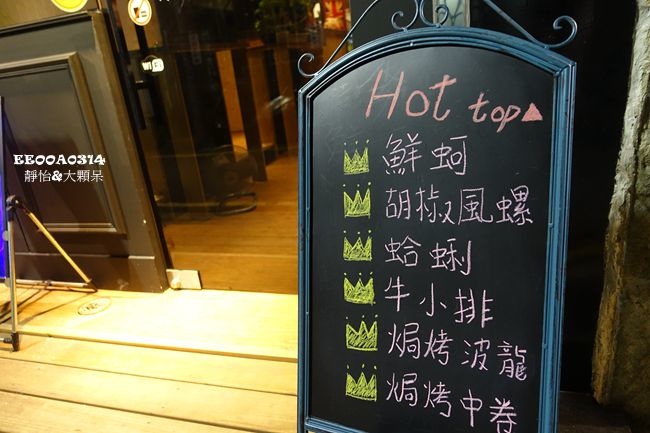 WiFi
EE00A0314
靜怡&大顆呆
Hot top▲
鮮蚵
胡椒風螺
蛤蜊
牛小排
焗烤波龍
焗烤中卷